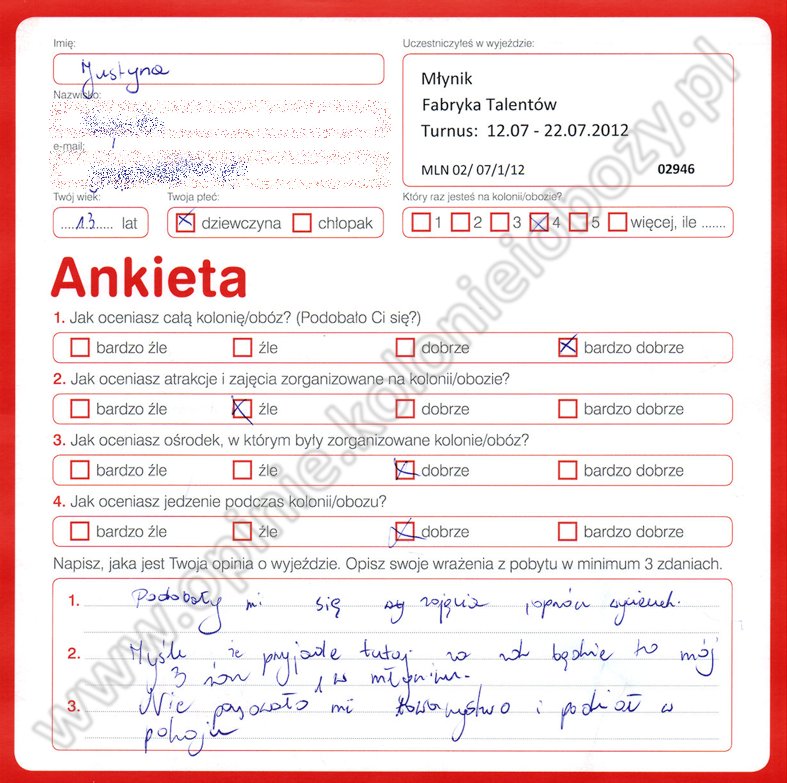 Imię:
Justyna
Uczestniczyłeś w wyjeździe:
Młynik
Fabryka Talentów
Turnus: 12.07 - 22.07.2012
MLN 02/ 07/1/12 02946
Nazwisko:
e-mail:
Twój wiek:
13 lat
Twoja płeć:
dziewczyna chłopak
Który raz jesteś na kolonii/obozie?
1 2 3 4 5 więcej, ile .......
Ankieta
1. Jak oceniasz całą kolonię/obóz? (Podobało Ci się?)
bardzo źle źle dobrze bardzo dobrze
2. Jak oceniasz atrakcje i zajęcia zorganizowane na kolonii/obozie?
bardzo źle źle dobrze bardzo dobrze
3. Jak oceniasz ośrodek, w którym były zorganizowane kolonie/obóz?
bardzo źle źle dobrze bardzo dobrze
4. Jak oceniasz jedzenie podczas kolonii/obozu?
bardzo źle źle dobrze bardzo dobrze
Napisz, jaka jest Twoja opinia o wyjeździe. Opisz swoje wrażenia z pobytu w minimum 3 zdaniach.
1. Podobały mi się zajęcia oprócz
2. Myślę że przyjadę tutaj za rok będzie to mój
3 raz w młyniku.
3. Nie pasowało mi towarzystwo i podział w
pokoju
www.opinie.kolonieiobozy.pl